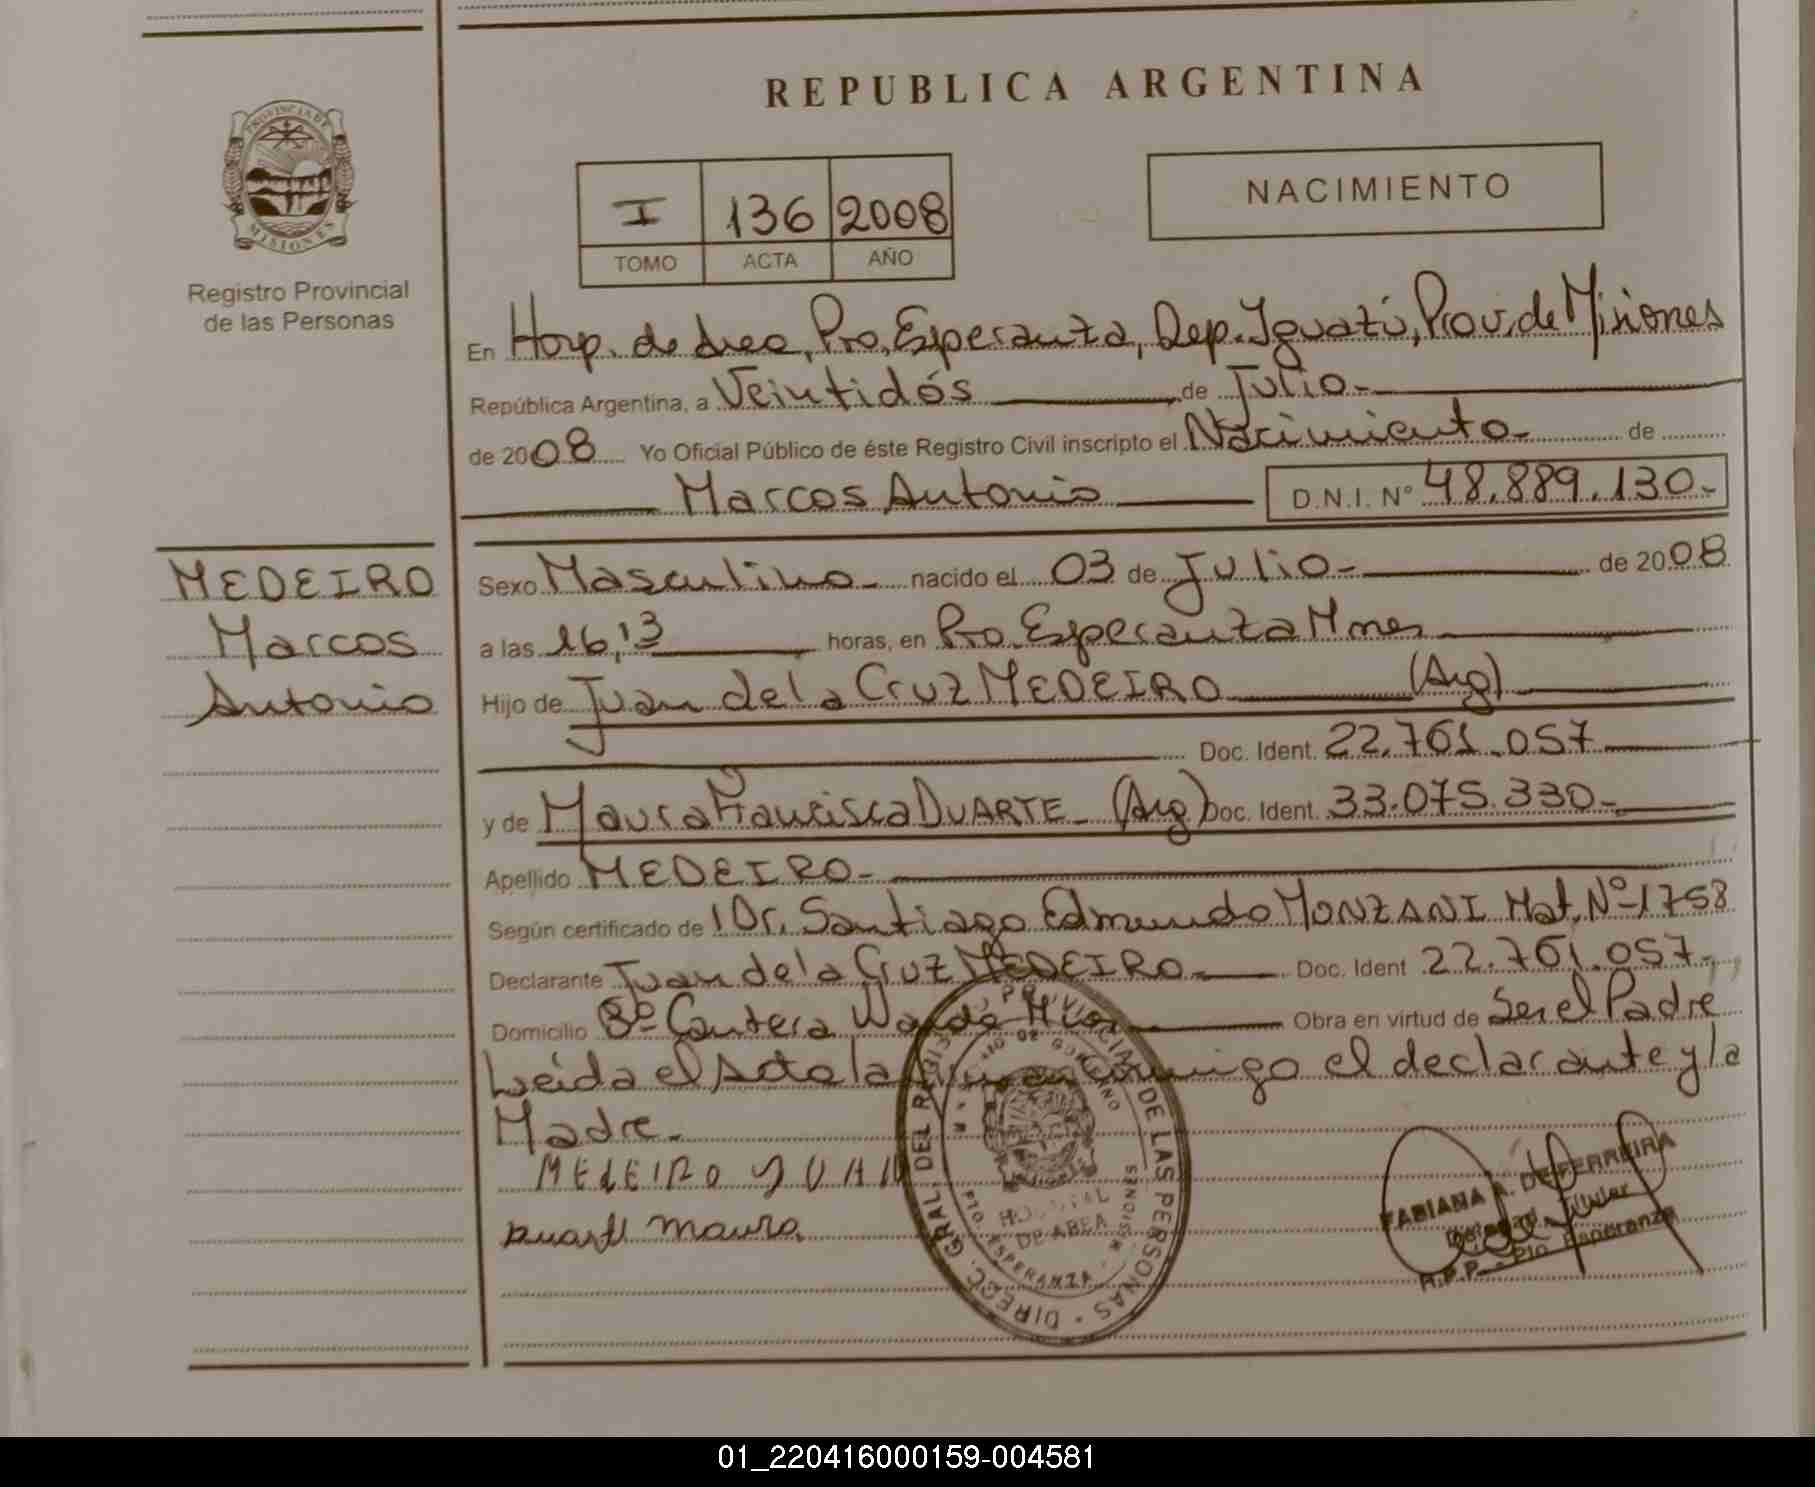 REPUBLICA ARGENTINA
PROVINCIA DE
MISIONES
Registro Provincial
de las Personas
I 136 2008
TOMO ACTA AÑO
NACIMIENTO
En Hosp. de Area, Pto. Esperanza, Dep. Iguazú, Prov. de Misiones
República Argentina, a Veintidós de Julio-
de 2008 Yo Oficial Público de éste Registro Civil inscripto el Nacimiento- de
Marcos Antonio D.N.I. N° 48.889.130.-
MEDEIRO
Marcos
Antonio
Sexo Masculino- nacido el 03 de Julio- de 2008
a las 16,13 horas, en Pto. Esperanza Mnes
Hijo de Juan de la Cruz MEDEIRO (Arg)
Doc. Ident. 22.761.057
y de Maura Francisca DUARTE- (Arg) Doc. Ident. 33.075.330-
Apellido MEDEIRO-
Según certificado de Dr. Santiago Edmundo MONZANI Mat. Nº 1758
Declarante Juan de la Cruz MEDEIRO- Doc. Ident 22.761.057-
Domicilio Bº Cantera Wanda Obra en virtud de Ser el Padre
Leída el Acta la firman conmigo el declarante y la
Madre.-
MEDEIRO JUAN
Duarte maura
DIRECC. GRAL. DEL REG. PROVINCIAL DE LAS PERSONAS
HOSPITAL
DE AREA
PTO. ESPERANZA - MISIONES
FABIANA A. DE FERREIRA
Titular
R.P.P. - Pto. Esperanza
01_220416000159-004581